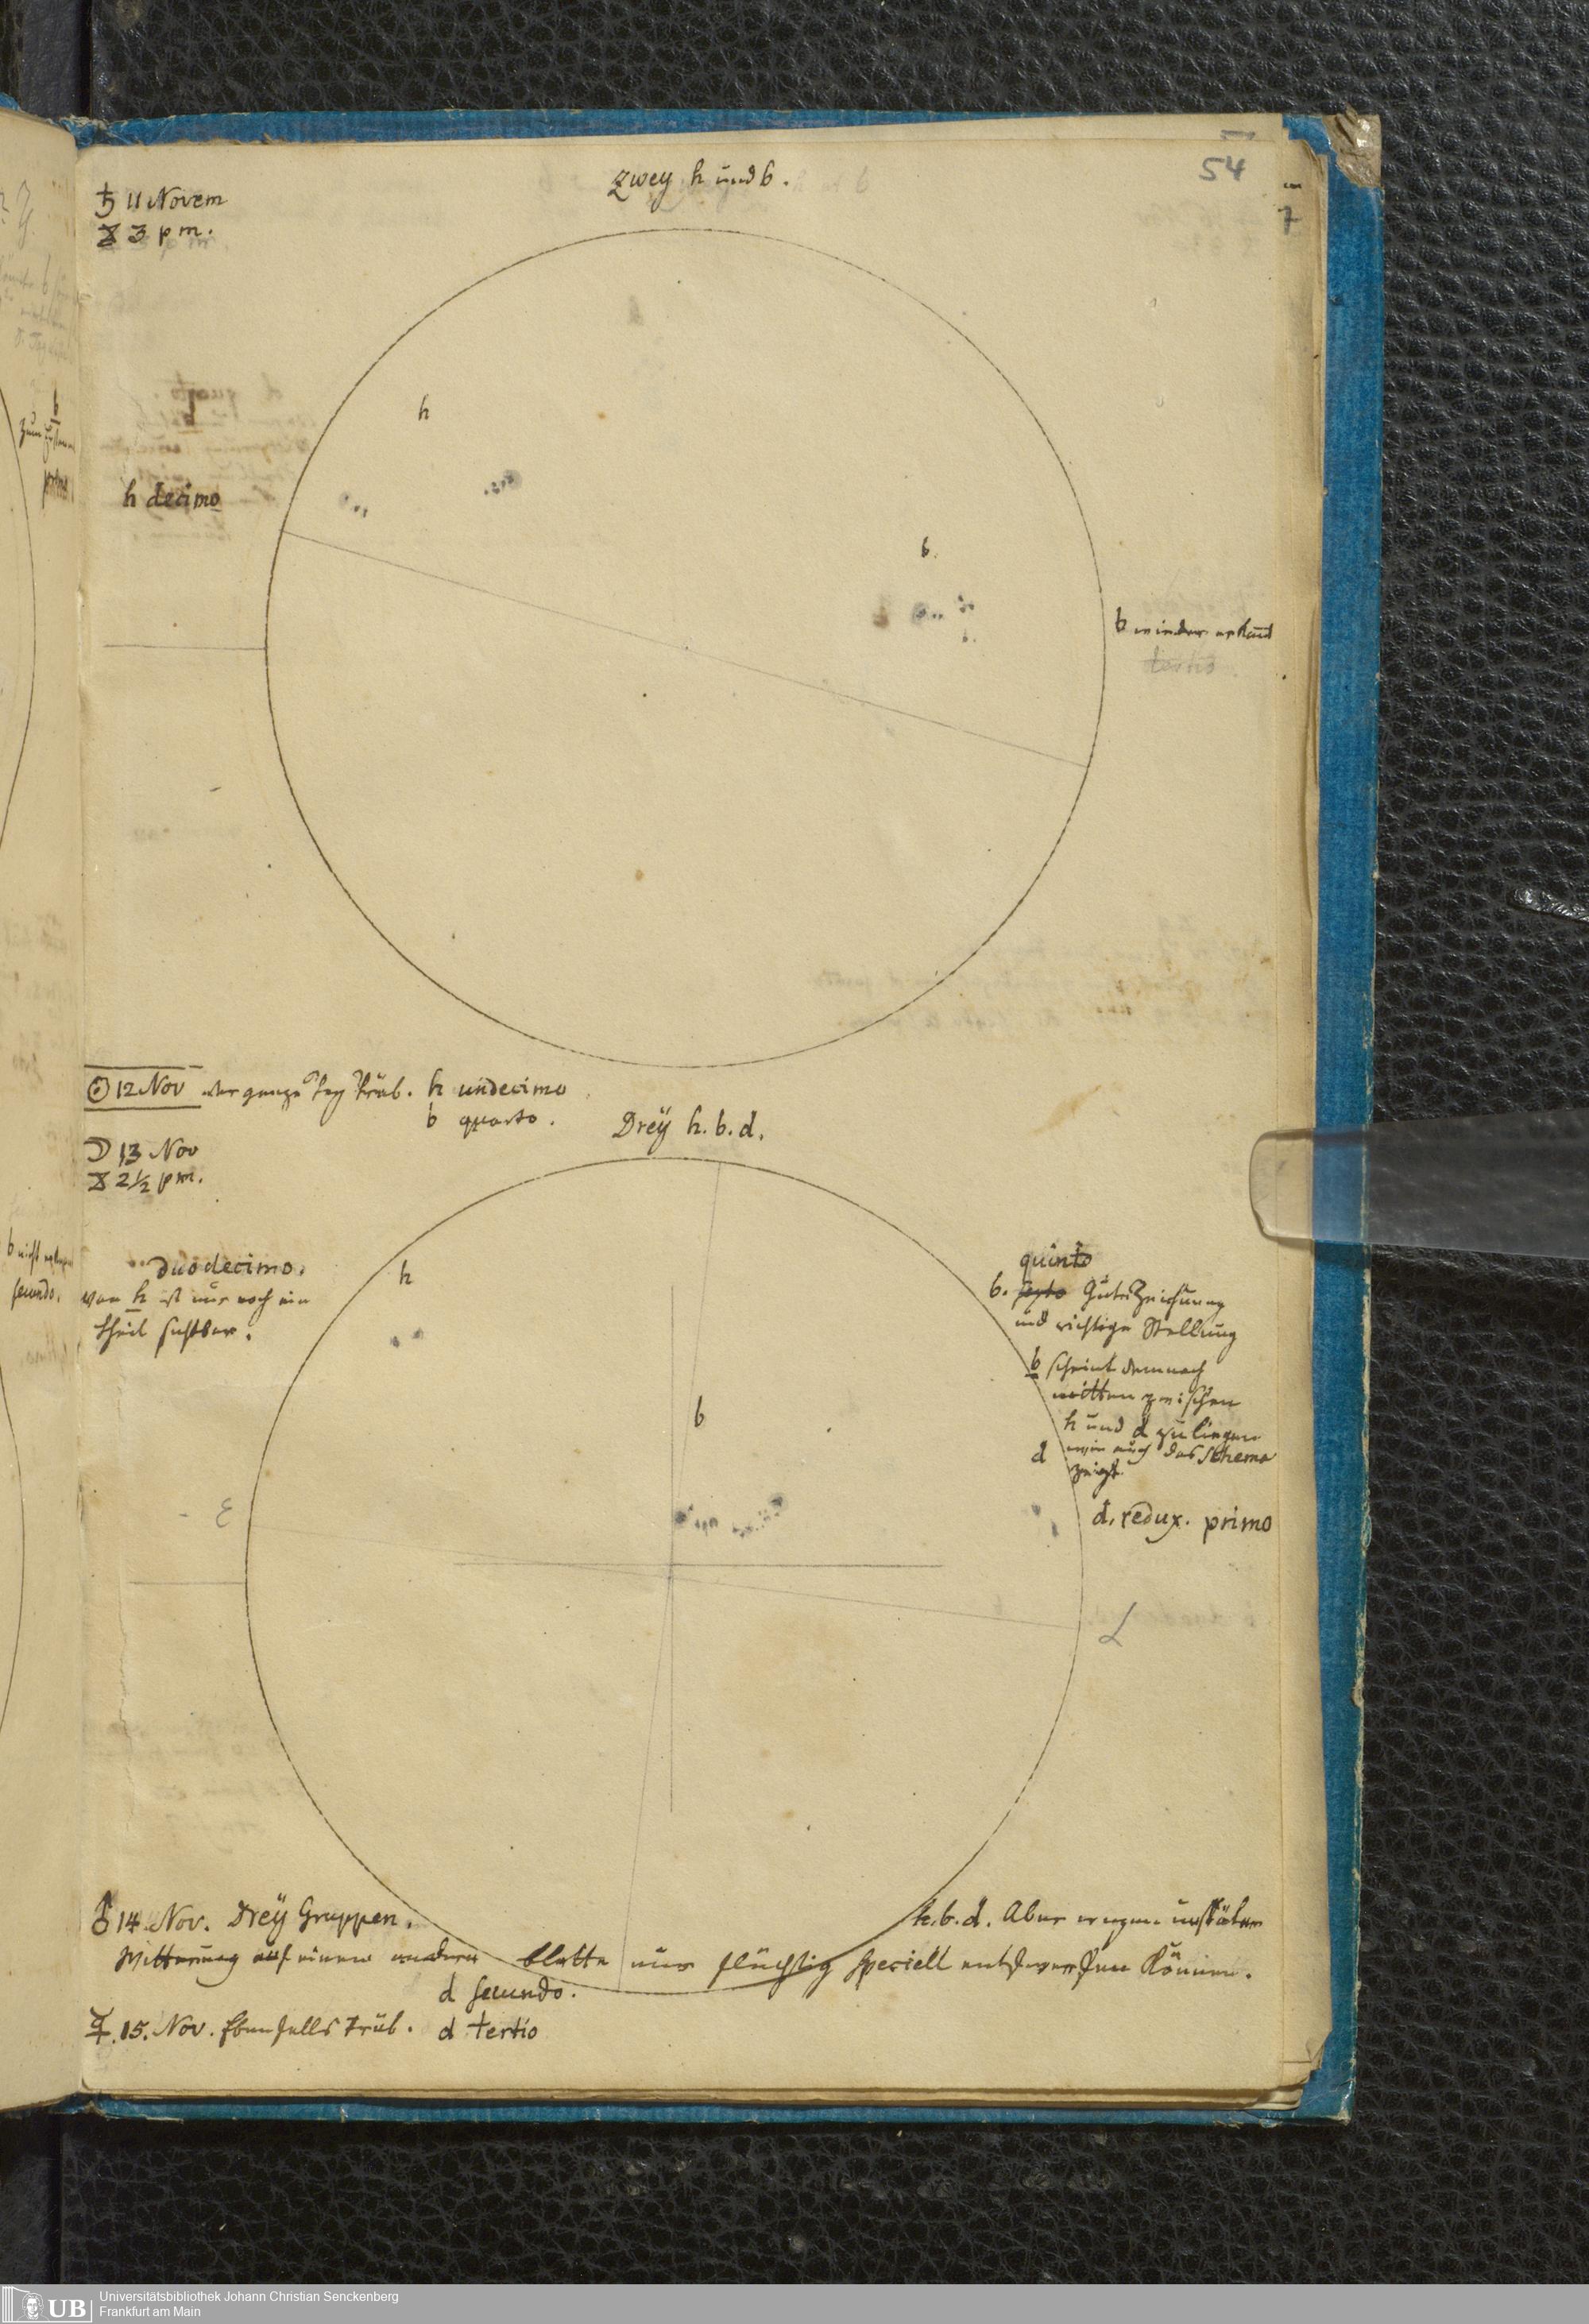 54
zwey h und b.
♄ 11 Novem
3 pm.
h
h decimo
b.
b minder
tertio
b.
☉ 12 Nov der ganze Tag trüb. h undecimo
b quarto.
Drey h. b. d.
☽ 13 Nov
2½ pm.
duodecimo.
von h ist nur noch ein
theil sichtbar.
h
b
quinto
b. Gute Zeichnung
und richtige Stellung
b scheint demnach
mitten zwischen
h und d zu liegen
d wie auch das Schema
zeigt.
d. redux. primo
ε
♂ 14. Nov. Drey Gruppen. h. b. d. Aber wegen
Witterung auf einem andern blatte nur flüchtig speciell entwerffen können.
d secundo.
☿. 15. Nov. Ebenfalls trüb. d tertio
b
primo
b nicht
secundo.
UB
Universitätsbibliothek Johann Christian Senckenberg
Frankfurt am Main